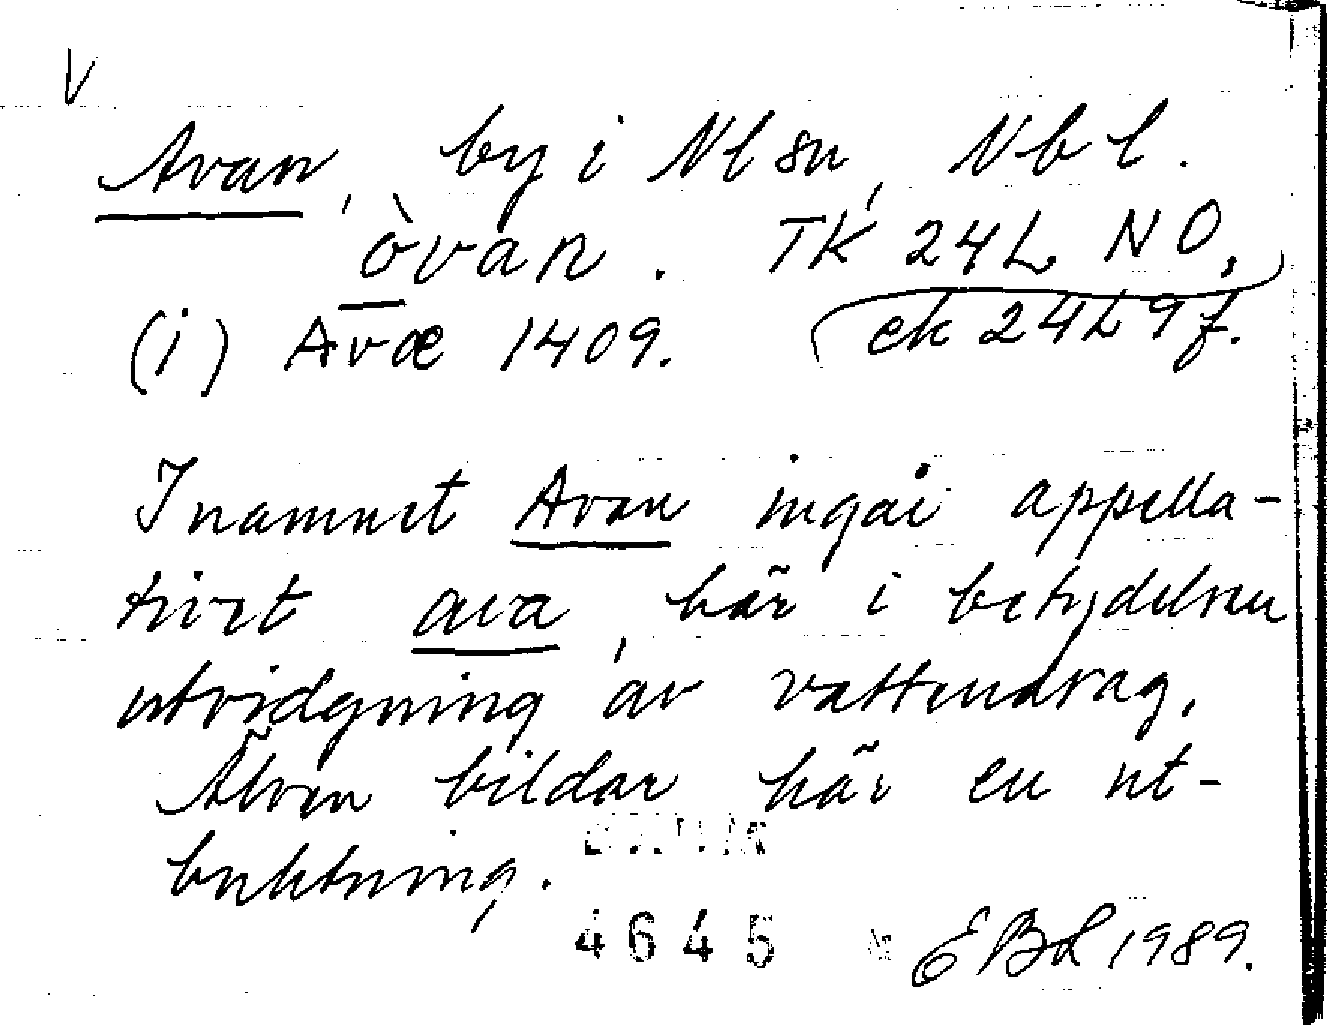 V
Avan, by i Nl sn, Nb l.
òvan. TK 24L NO,
(i) Avæ 1409. ek 24L 9f.
I namnet Avan ingår appella-
tivet ava, här i betydelsen
utvidgning av vattendrag.
Älven bildar här en ut-
buktning.
4645
EBL 1989.